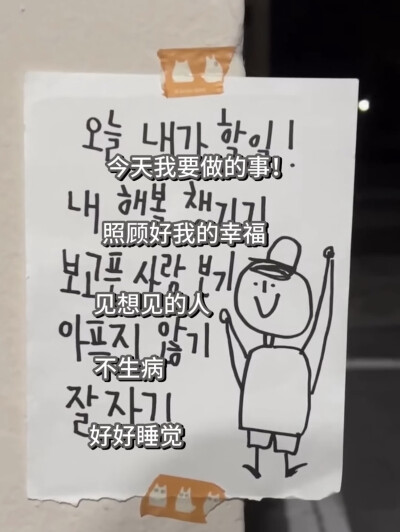 오늘 내가 할일!
今天我要做的事!
내 행복 챙기기
照顾好我的幸福
보고픈 사람 보기
见想见的人
아프지 않기
不生病
잘 자기
好好睡觉